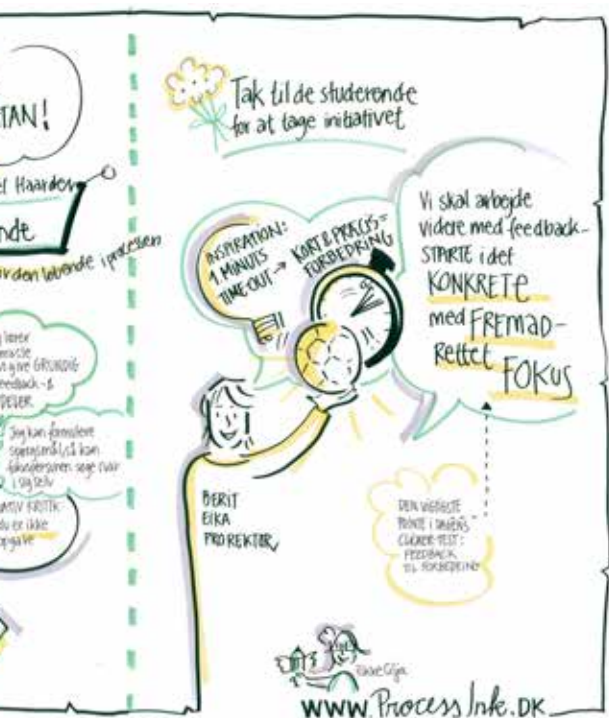 TAN!
el Haarder
nde
iv den løbende i processen
GRUNDIG
feedback-
DELER
Jeg kan formulere
søge svar
i sig selv
KRITIK
du er ikke
opgave
Tak til de studerende
for at tage initiativet
INSPIRATION:
1 MINUTS
TIME-OUT → KORT & PRÆCIS =
FORBEDRING
Vi skal arbejde
videre med feedback-
STARTE i det
KONKRETE
med FREMAD-
Rettet
FOKUS
BERIT
EIKA
PROREKTOR
DEN VIGTIGSTE
POINTE I DAGENS
CLICKER-TEST:
FEEDBACK
TIL FORBEDRING
www.ProcessInk.DK